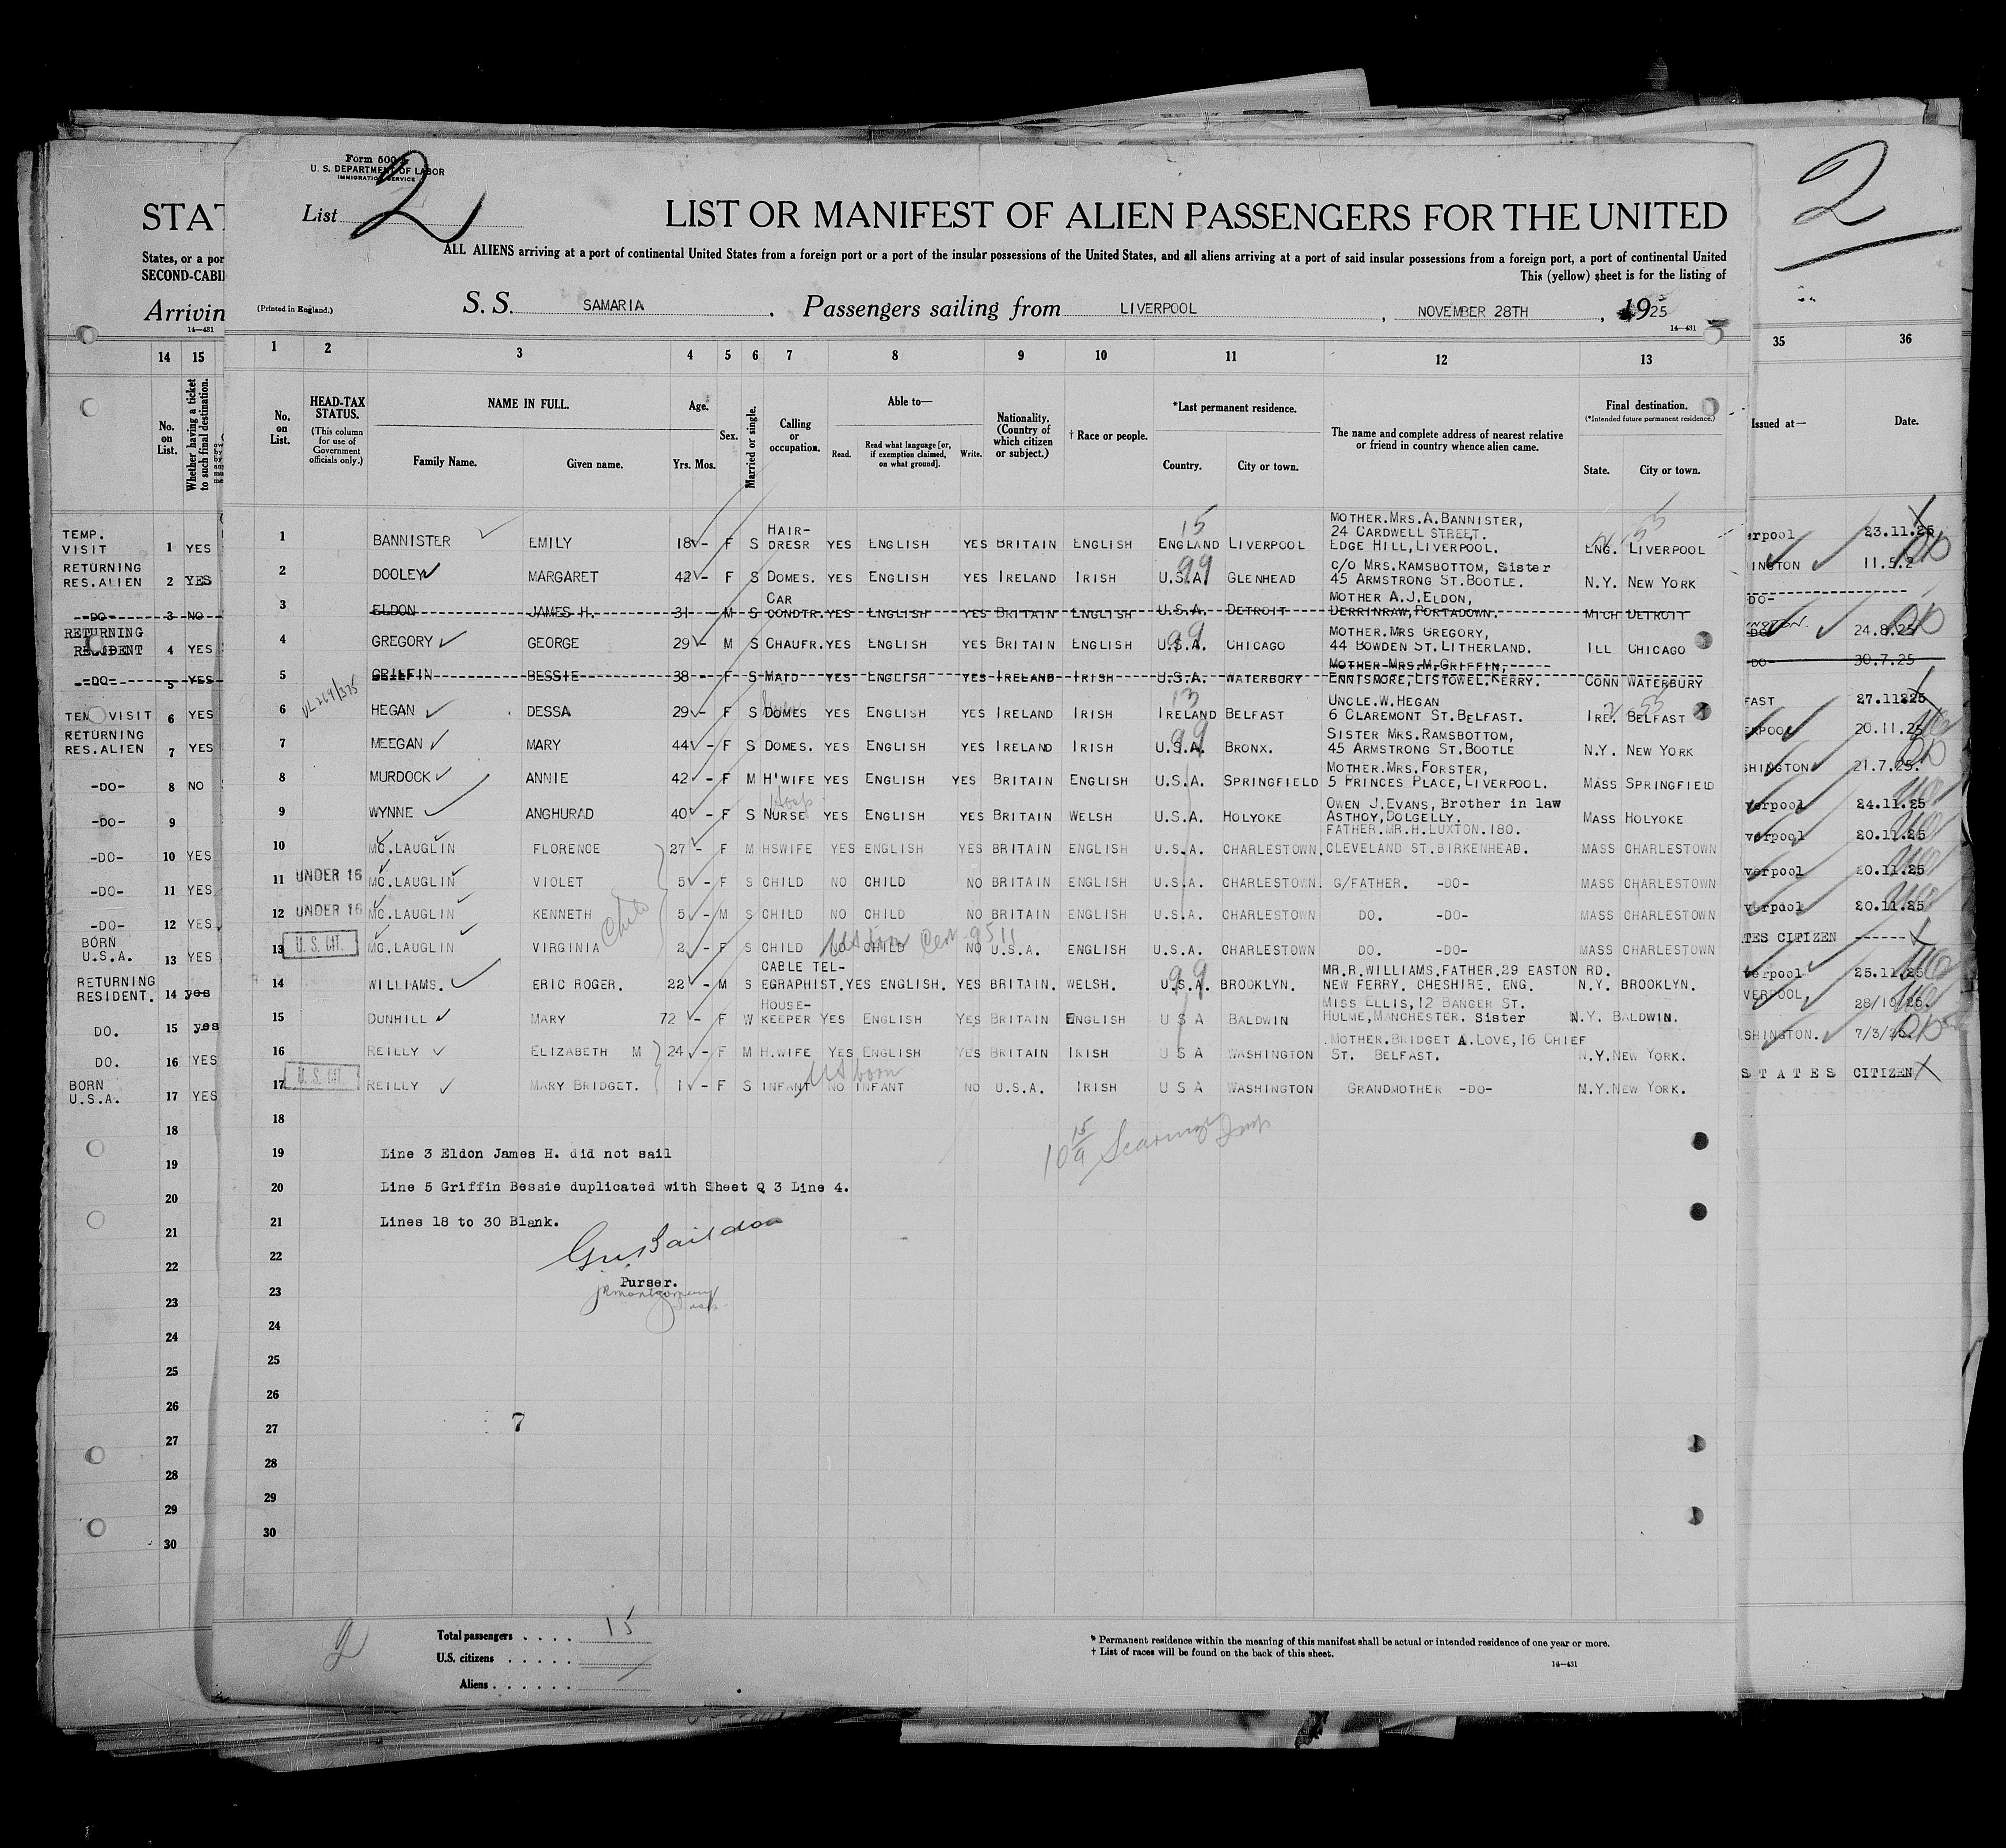 Form 500
U. S. DEPARTMENT OF LABOR
IMMIGRATION SERVICE
List 2
2
STAT
LIST OR MANIFEST OF ALIEN PASSENGERS FOR THE UNITED
States, or a por
ALL ALIENS arriving at a port of continental United States from a foreign port or a port of the insular possessions of the United States, and all aliens arriving at a port of said insular possessions from a foreign port, a port of continental United
SECOND-CABI
This (yellow) sheet is for the listing of
Arrivin
14—431
(Printed in England.)
S. S. SAMARIA . Passengers sailing from LIVERPOOL , NOVEMBER 28TH , 1925
14—431
14 15 1 2 3 4 5 6 7 8 9 10 11 12 13 35 36
No. on List.
Whether having a ticket to such final destination.
No. on List.
HEAD-TAX STATUS.
(This column for use of Government officials only.)
NAME IN FULL.
Family Name. Given name.
Age.
Yrs. Mos.
Sex.
Married or single.
Calling or occupation.
Able to—
Read. Read what language [or, if exemption claimed, on what ground]. Write.
Nationality. (Country of which citizen or subject.)
† Race or people.
*Last permanent residence.
Country. City or town.
The name and complete address of nearest relative or friend in country whence alien came.
Final destination.
(*Intended future permanent residence.)
State. City or town.
Issued at—
Date.
TEMP. VISIT 1 YES 1 BANNISTER EMILY 18 - F S HAIR-DRESR YES ENGLISH YES BRITAIN ENGLISH 15 ENGLAND LIVERPOOL MOTHER.MRS.A.BANNISTER, 24 CARDWELL STREET. EDGE HILL, LIVERPOOL. ENG. LIVERPOOL erpool 23.11.25
RETURNING RES.ALIEN 2 YES 2 DOOLEY MARGARET 42 - F S DOMES. YES ENGLISH YES IRELAND IRISH 99 U.S.A. GLENHEAD C/O MRS.RAMSBOTTOM, Sister 45 ARMSTRONG ST.BOOTLE. N.Y. NEW YORK INGTON 11.5.2
-DO- 3 NO 3 ELDON JAMES H. 31 - M S CAR CONDTR. YES ENGLISH YES BRITAIN ENGLISH U.S.A. DETROIT MOTHER A.J.ELDON, DERRINRAW,PORTADOWN. MICH DETROIT DO-
RETURNING RESIDENT 4 YES 4 GREGORY GEORGE 29 - M S CHAUFR. YES ENGLISH YES BRITAIN ENGLISH 99 U.S.A. CHICAGO MOTHER.MRS GREGORY, 44 BOWDEN ST.LITHERLAND. ILL CHICAGO DO 24.8.25
-DO- 5 YES 5 GRIFFIN BESSIE 38 - F S MAID YES ENGLISH YES IRELAND IRISH U.S.A. WATERBURY MOTHER MRS.M.GRIFFIN, ENNISMORE,LISTOWEL.KERRY. CONN WATERBURY DO- 30.7.25
TEM VISIT 6 YES 6 HEGAN DESSA 29 - F S DOMES YES ENGLISH YES IRELAND IRISH 13 IRELAND BELFAST UNCLE.W.HEGAN 6 CLAREMONT ST.BELFAST. IRE. BELFAST FAST 27.11.25
RETURNING RES.ALIEN 7 YES 7 MEEGAN MARY 44 - F S DOMES. YES ENGLISH YES IRELAND IRISH 99 U.S.A. BRONX. SISTER MRS.RAMSBOTTOM, 45 ARMSTRONG ST.BOOTLE N.Y. NEW YORK RPOOL 20.11.25
-DO- 8 NO 8 MURDOCK ANNIE 42 - F M H'WIFE YES ENGLISH YES BRITAIN ENGLISH U.S.A. SPRINGFIELD MOTHER.MRS.FORSTER, 5 PRINCES PLACE, LIVERPOOL. MASS SPRINGFIELD SHINGTON 21.7.25.
-DO- 9 9 WYNNE ANGHURAD 40 - F S NURSE YES ENGLISH YES BRITAIN WELSH U.S.A. HOLYOKE OWEN J.EVANS, Brother in law ASTHOY,DOLGELLY. MASS HOLYOKE verpool 24.11.25
-DO- 10 YES 10 MC.LAUGLIN FLORENCE 27 - F M HSWIFE YES ENGLISH YES BRITAIN ENGLISH U.S.A. CHARLESTOWN. FATHER.MR.H.LUXTON.180. CLEVELAND ST.BIRKENHEAD. MASS CHARLESTOWN verpool 20.11.25
-DO- 11 YES 11 UNDER 16 MC.LAUGLIN VIOLET 5 - F S CHILD NO CHILD NO BRITAIN ENGLISH U.S.A. CHARLESTOWN. G/FATHER. -DO- MASS CHARLESTOWN verpool 20.11.25
-DO- 12 YES 12 UNDER 16 MC.LAUGLIN KENNETH 5 - M S CHILD NO CHILD NO BRITAIN ENGLISH U.S.A. CHARLESTOWN DO. -DO- MASS CHARLESTOWN verpool 20.11.25
BORN U.S.A. 13 YES 13 U. S. CIT. MC.LAUGLIN VIRGINIA 2 - F S CHILD NO CHILD NO U.S.A. ENGLISH U.S.A. CHARLESTOWN DO. -DO- MASS CHARLESTOWN TES CITIZEN ------
RETURNING RESIDENT. 14 yes 14 WILLIAMS. ERIC ROGER. 22 - M S CABLE TEL-EGRAPHIST. YES ENGLISH. YES BRITAIN. WELSH. 99 U.S.A. BROOKLYN. MR.R.WILLIAMS.FATHER.29 EASTON RD. NEW FERRY. CHESHIRE. ENG. N.Y. BROOKLYN. verpool 25.11.25
DO. 15 yes 15 DUNHILL MARY 72 - F W HOUSE-KEEPER YES ENGLISH YES BRITAIN ENGLISH U S A BALDWIN MISS ELLIS,12 BANGER ST. HULME,MANCHESTER. Sister N.Y. BALDWIN. VERPOOL, 28/10/25.
DO. 16 YES 16 REILLY ELIZABETH M 24 - F M H.WIFE YES ENGLISH YES BRITAIN IRISH U S A WASHINGTON MOTHER.BRIDGET A.LOVE,16 CHIEF ST. BELFAST. N.Y. NEW YORK. SHINGTON. 7/3/25
BORN U.S.A. 17 YES 17 U. S. CIT. REILLY MARY BRIDGET. 1 - F S INFANT NO INFANT NO U.S.A. IRISH U S A WASHINGTON GRANDMOTHER -DO- N.Y. NEW YORK. STATES CITIZEN
Child
US born
18 18
19 19 Line 3 Eldon James H. did not sail
20 20 Line 5 Griffin Bessie duplicated with Sheet Q 3 Line 4.
21 21 Lines 18 to 30 Blank.
22 22
Purser.
23 23
24 24
25 25
26 26
27 27 7
28 28
29 29
30 30
2
Total passengers . . . . 15
U.S. citizens . . . . .
Aliens . . . . . .
* Permanent residence within the meaning of this manifest shall be actual or intended residence of one year or more.
† List of races will be found on the back of this sheet.
14—431